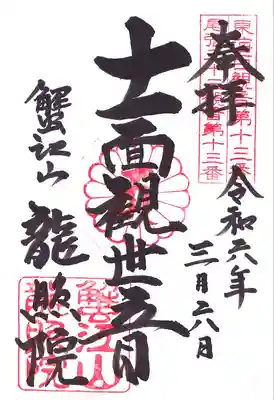 第十三番
第十三番
奉拝
令和六年
三月
十一面觀世音
蟹江山
龍照院
蟹江山
龍照院